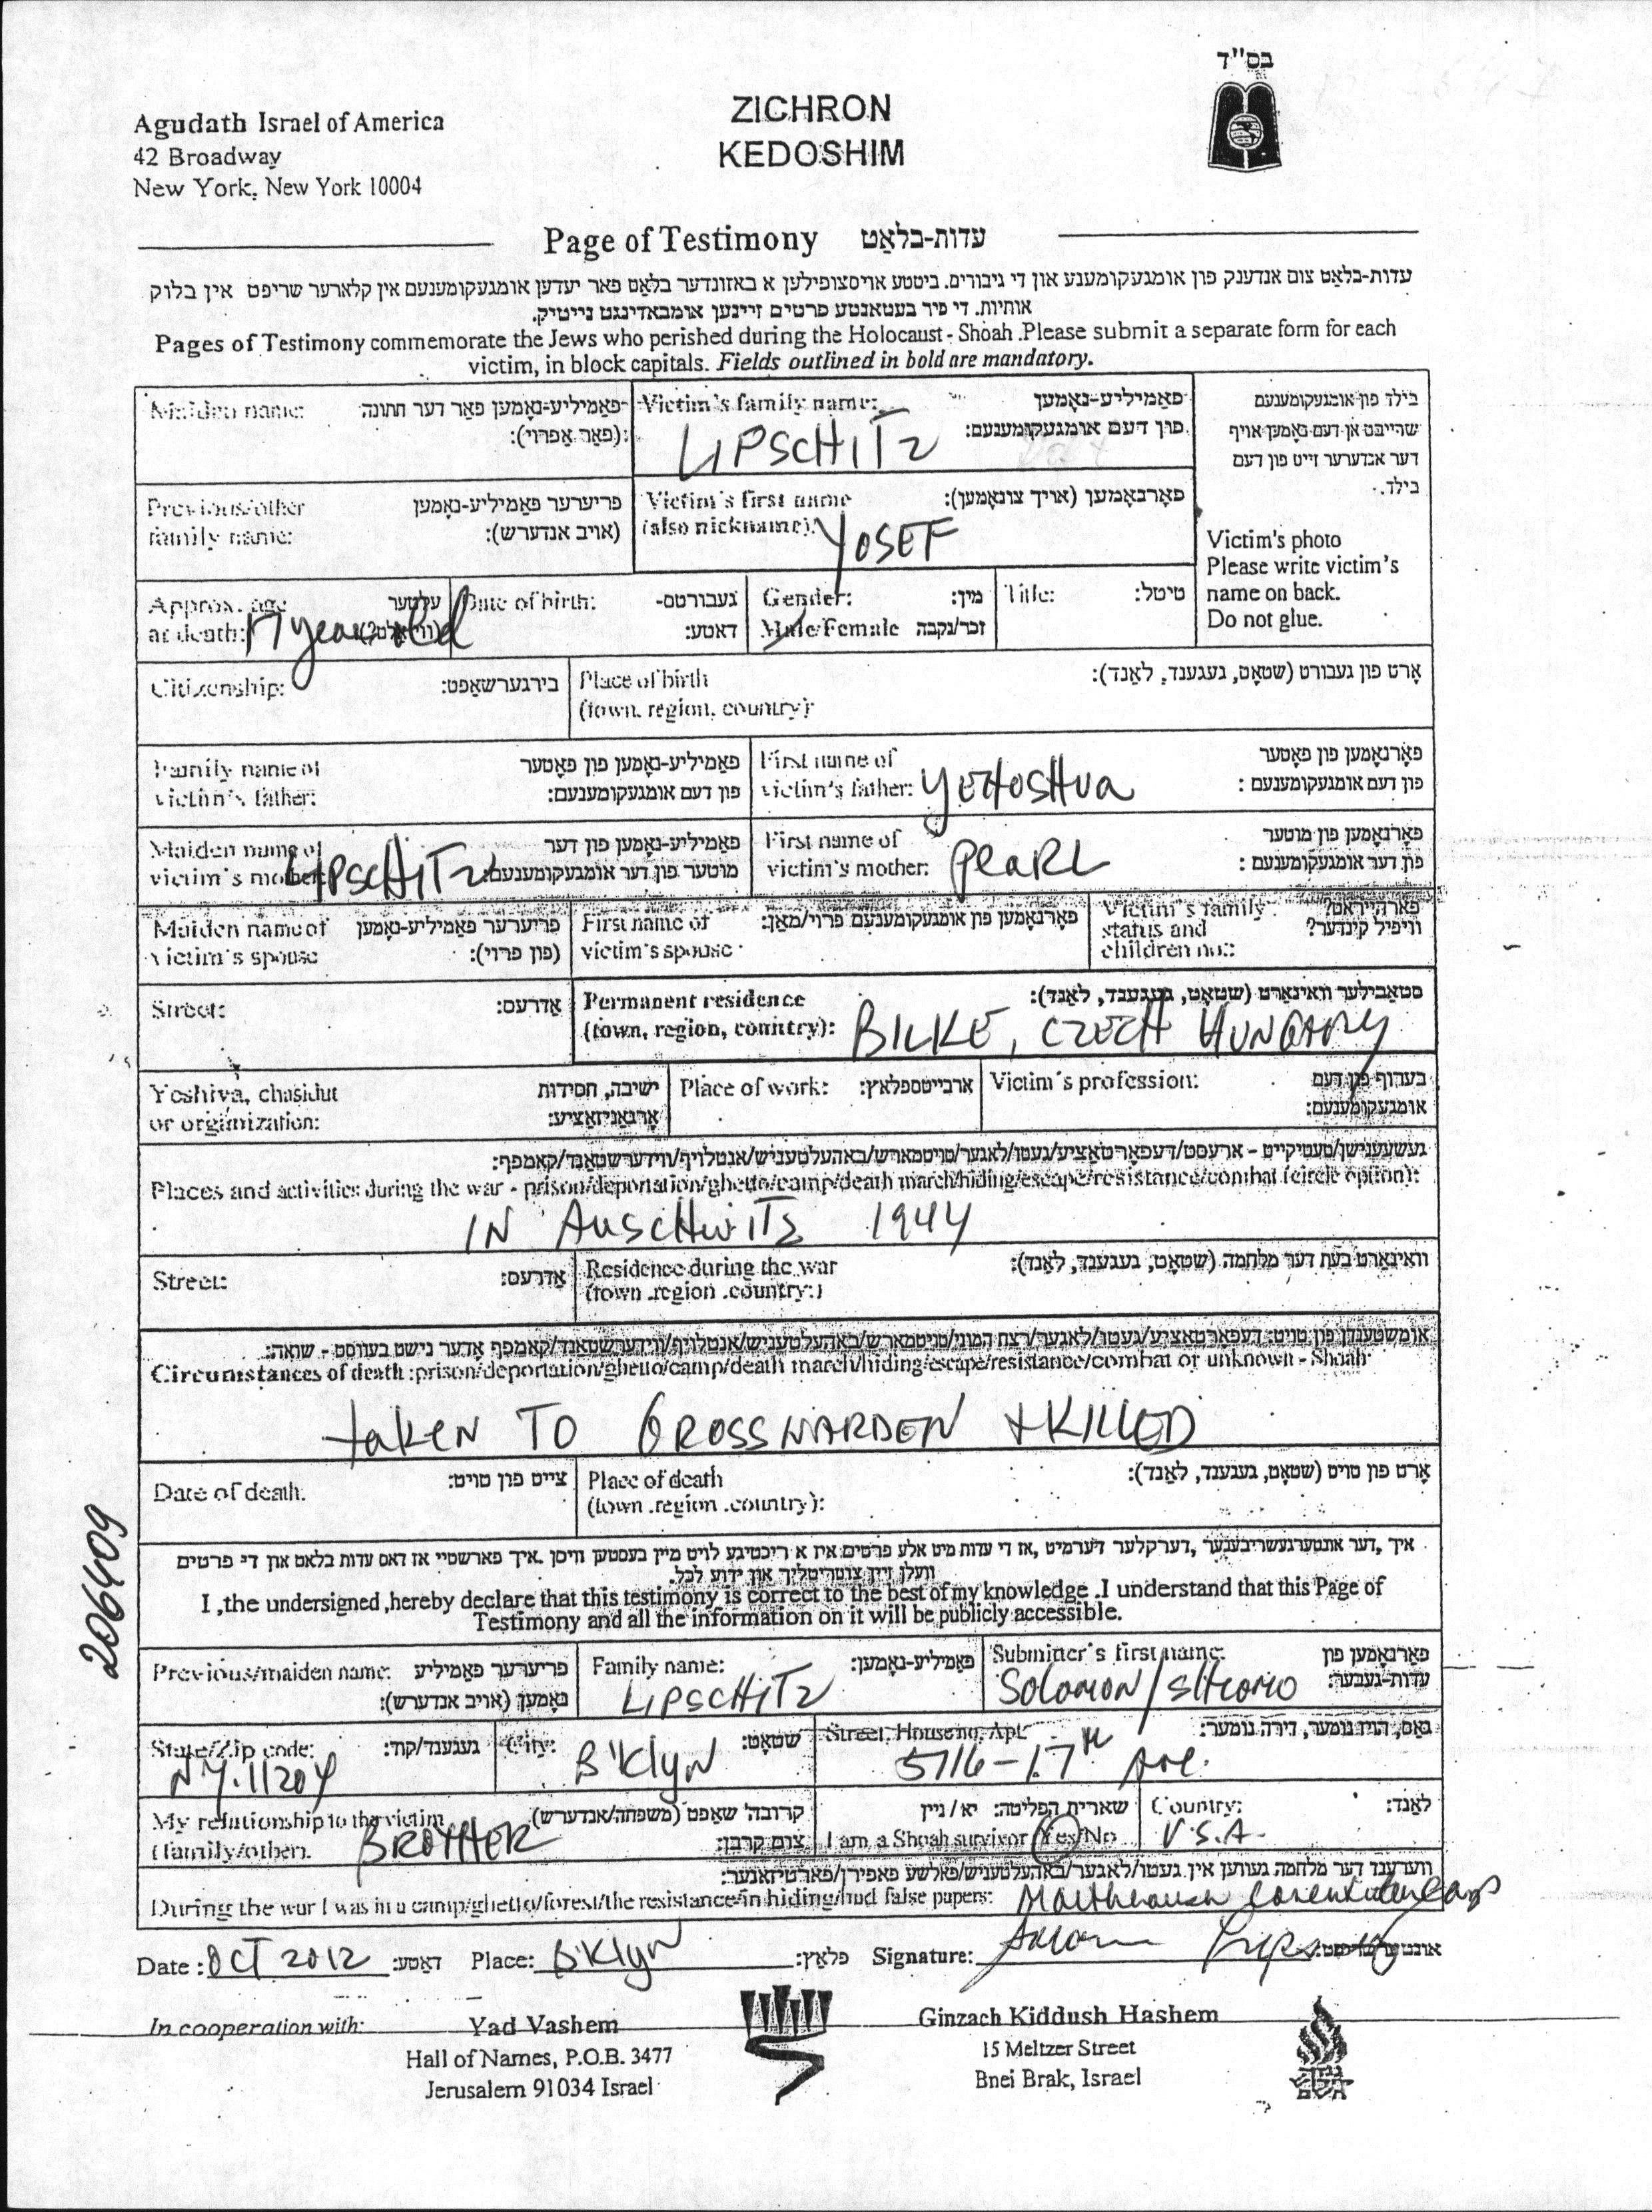 בס"ד
Agudath Israel of America
42 Broadway
New York, New York 10004
ZICHRON
KEDOSHIM
Page of Testimony עדות-בלאַט
עדות-בלאַט צום אנדענק פון אומגעקומענע און די גיבורים. ביטטע אויסצופילען א באזונדער בלאַט פאר יעדען אומגעקומענעם אין קלארער שריפט אין בלוק
אותיות. די פיר בעטאנטע פרטים זיינען אומבאדינגט נייטיק.
Pages of Testimony commemorate the Jews who perished during the Holocaust - Shoah .Please submit a separate form for each
victim, in block capitals. Fields outlined in bold are mandatory.
Maiden name: פאַמיליע-נאָמען פאַר דער חתונה
(פאַר אַפרוי):
Victim's family name: פאַמיליע-נאָמען
פון דעם אומגעקומענעם:
LIPSCHITZ
בילד פון אומגעקומענעם
שרייבט אן דעם נאָמען אויף
דער אנדערער זייט פון דעם
בילד.
Victim's photo
Please write victim's
name on back.
Do not glue.
Previous/other פריערער פאַמיליע-נאָמען
family name: (אויב אנדערש):
Victim's first name פאָרנאָמען (אויך צונאָמען):
(also nickname): YOSEF
Approx. age עלטער
at death: 17 years old
Date of birth: געבורטס-
דאטע:
Gender: מין:
Male/Female זכר/נקבה
Title: טיטל:
Citizenship: בירגערשאַפט:
Place of birth אָרט פון געבורט (שטאָט, געגענד, לאַנד):
(town, region, country):
Family name of פאַמיליע-נאָמען פון פאָטער
victim's father: פון דעם אומגעקומענעם:
First name of פאָרנאָמען פון פאָטער
victim's father: YEHOSHUA פון דעם אומגעקומענעם :
Maiden name of פאַמיליע-נאָמען פון דער
victim's mother: LIPSCHITZ מוטער פון דער אומגעקומענעם:
First name of פאָרנאָמען פון מוטער
victim's mother: PEARL פון דער אומגעקומענעם :
Maiden name of פריערער פאַמיליע-נאָמען
victim's spouse (פון פרוי):
First name of פאָרנאָמען פון אומגעקומענעם פרוי/מאַן:
victim's spouse
Victim's family פארהייראט?
status and וויפיל קינדער?
children no.:
Street: אַדרעס:
Permanent residence סטאַבילער וואוינאָרט (שטאָט, געגענד, לאַנד):
(town, region, country): BILKE, CZECH HUNGARY
Yeshiva, chasidut ישיבה, חסידות
or organization: אָרגאַניזאַציע:
Place of work: ארבייטספלאץ:
Victim's profession: בערוף פון דעם
אומגעקומענעם:
געשעענישן/טעטיקייט - ארעסט/דעפאָרטאַציע/געטו/לאגער/טויטמארש/באהעלטעניש/אנטלויף/ווידערשטאַנד/קאמפף:
Places and activities during the war - prison/deportation/ghetto/camp/death march/hiding/escape/resistance/combat (circle option):
IN AUSCHWITZ 1944
Street: אַדרעס:
Residence during the war וואוינאָרט בעת דער מלחמה (שטאָט, געגענד, לאַנד):
(town .region .country:)
אומשטענדן פון טויט: דעפאָרטאַציע/געטו/לאגער/רצח המוני/טויטמארש/באהעלטעניש/אנטלויף/ווידערשטאַנד/קאמפף אָדער נישט בעוואוסט - שואה:
Circumstances of death :prison/deportation/ghetto/camp/death march/hiding/escape/resistance/combat or unknown - Shoah
taken TO GROSSWARDEN + KILLED
Date of death. צייט פון טויט:
Place of death אָרט פון טויט (שטאָט, געגענד, לאַנד):
(town .region .country):
איך ,דער אונטערגעשריבענער ,דערקלער דערמיט ,אז די עדות מיט אלע פרטים איז א ריכטיגע לויט מיין בעסטען וויסן .איך פארשטיי אז דאס עדות בלאט און די פרטים
וועלן זיין צוטריטליך און ידוע לכל.
I ,the undersigned ,hereby declare that this testimony is correct to the best of my knowledge .I understand that this Page of
Testimony and all the information on it will be publicly accessible.
206409
Previous/maiden name: פריערער פאַמיליע
נאָמען (אויב אנדערש):
Family name: פאַמיליע-נאָמען:
LIPSCHITZ
Submitter's first name: פאָרנאָמען פון
עדות-געבער:
Solomon/SHLOMO
State/Zip code: געגענד/קוד:
N.Y. 11204
City: שטאָט:
B'klyn
Street, House no, Apt. גאַס, הויז נומער, דירה נומער:
5716-17th Ave.
My relationship to the victim קרובה' שאַפט (משפחה/אנדערש)
(family/other). BROTHER צום קרבן:
שארית הפליטה: יא / ניין
I am a Shoah survivor Yes/No
Country: לאַנד:
U.S.A.
ווערענד דער מלחמה געווען אין געטו/לאגער/באהעלטעניש/פאלשע פאפירן/פארטיזאנער:
During the war I was in a camp/ghetto/forest/the resistance/in hiding/had false papers:
Date : OCT 2012 דאטע: Place: B'klyn פלאץ: Signature:
In cooperation with:
Yad Vashem
Hall of Names, P.O.B. 3477
Jerusalem 91034 Israel
Ginzach Kiddush Hashem
15 Meltzer Street
Bnei Brak, Israel